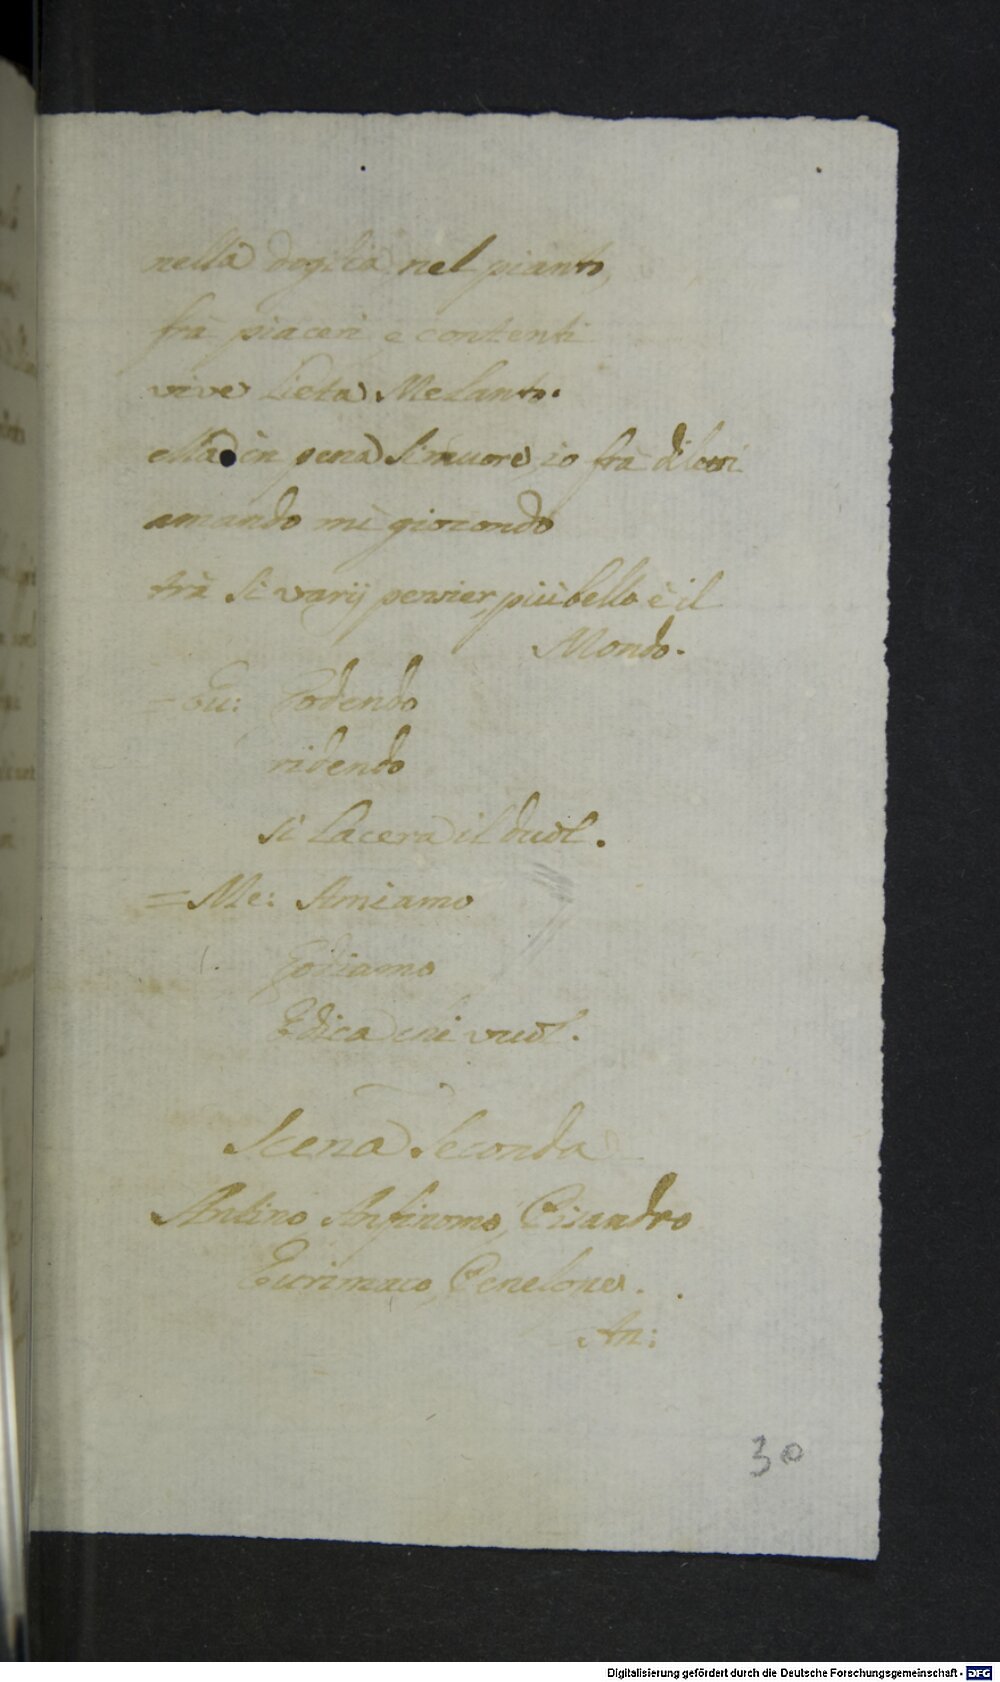 nella doglia nel pianto,
frà piaceri e contenti
vive lieta Melanto.
ella in pena si muore, io frà diletti
amando mi giocondo
trà sì varij pensier, più bello è il
Mondo.
=Eu: Godendo
ridendo
si lacera il duol.
=Me: Amiamo
Godiamo
E dica chi vuol.
Scena Seconda
Antino Anfinomo, Pisandro
Eurimaco, Penelope.
An:
30
Digitalisierung gefördert durch die Deutsche Forschungsgemeinschaft - DFG